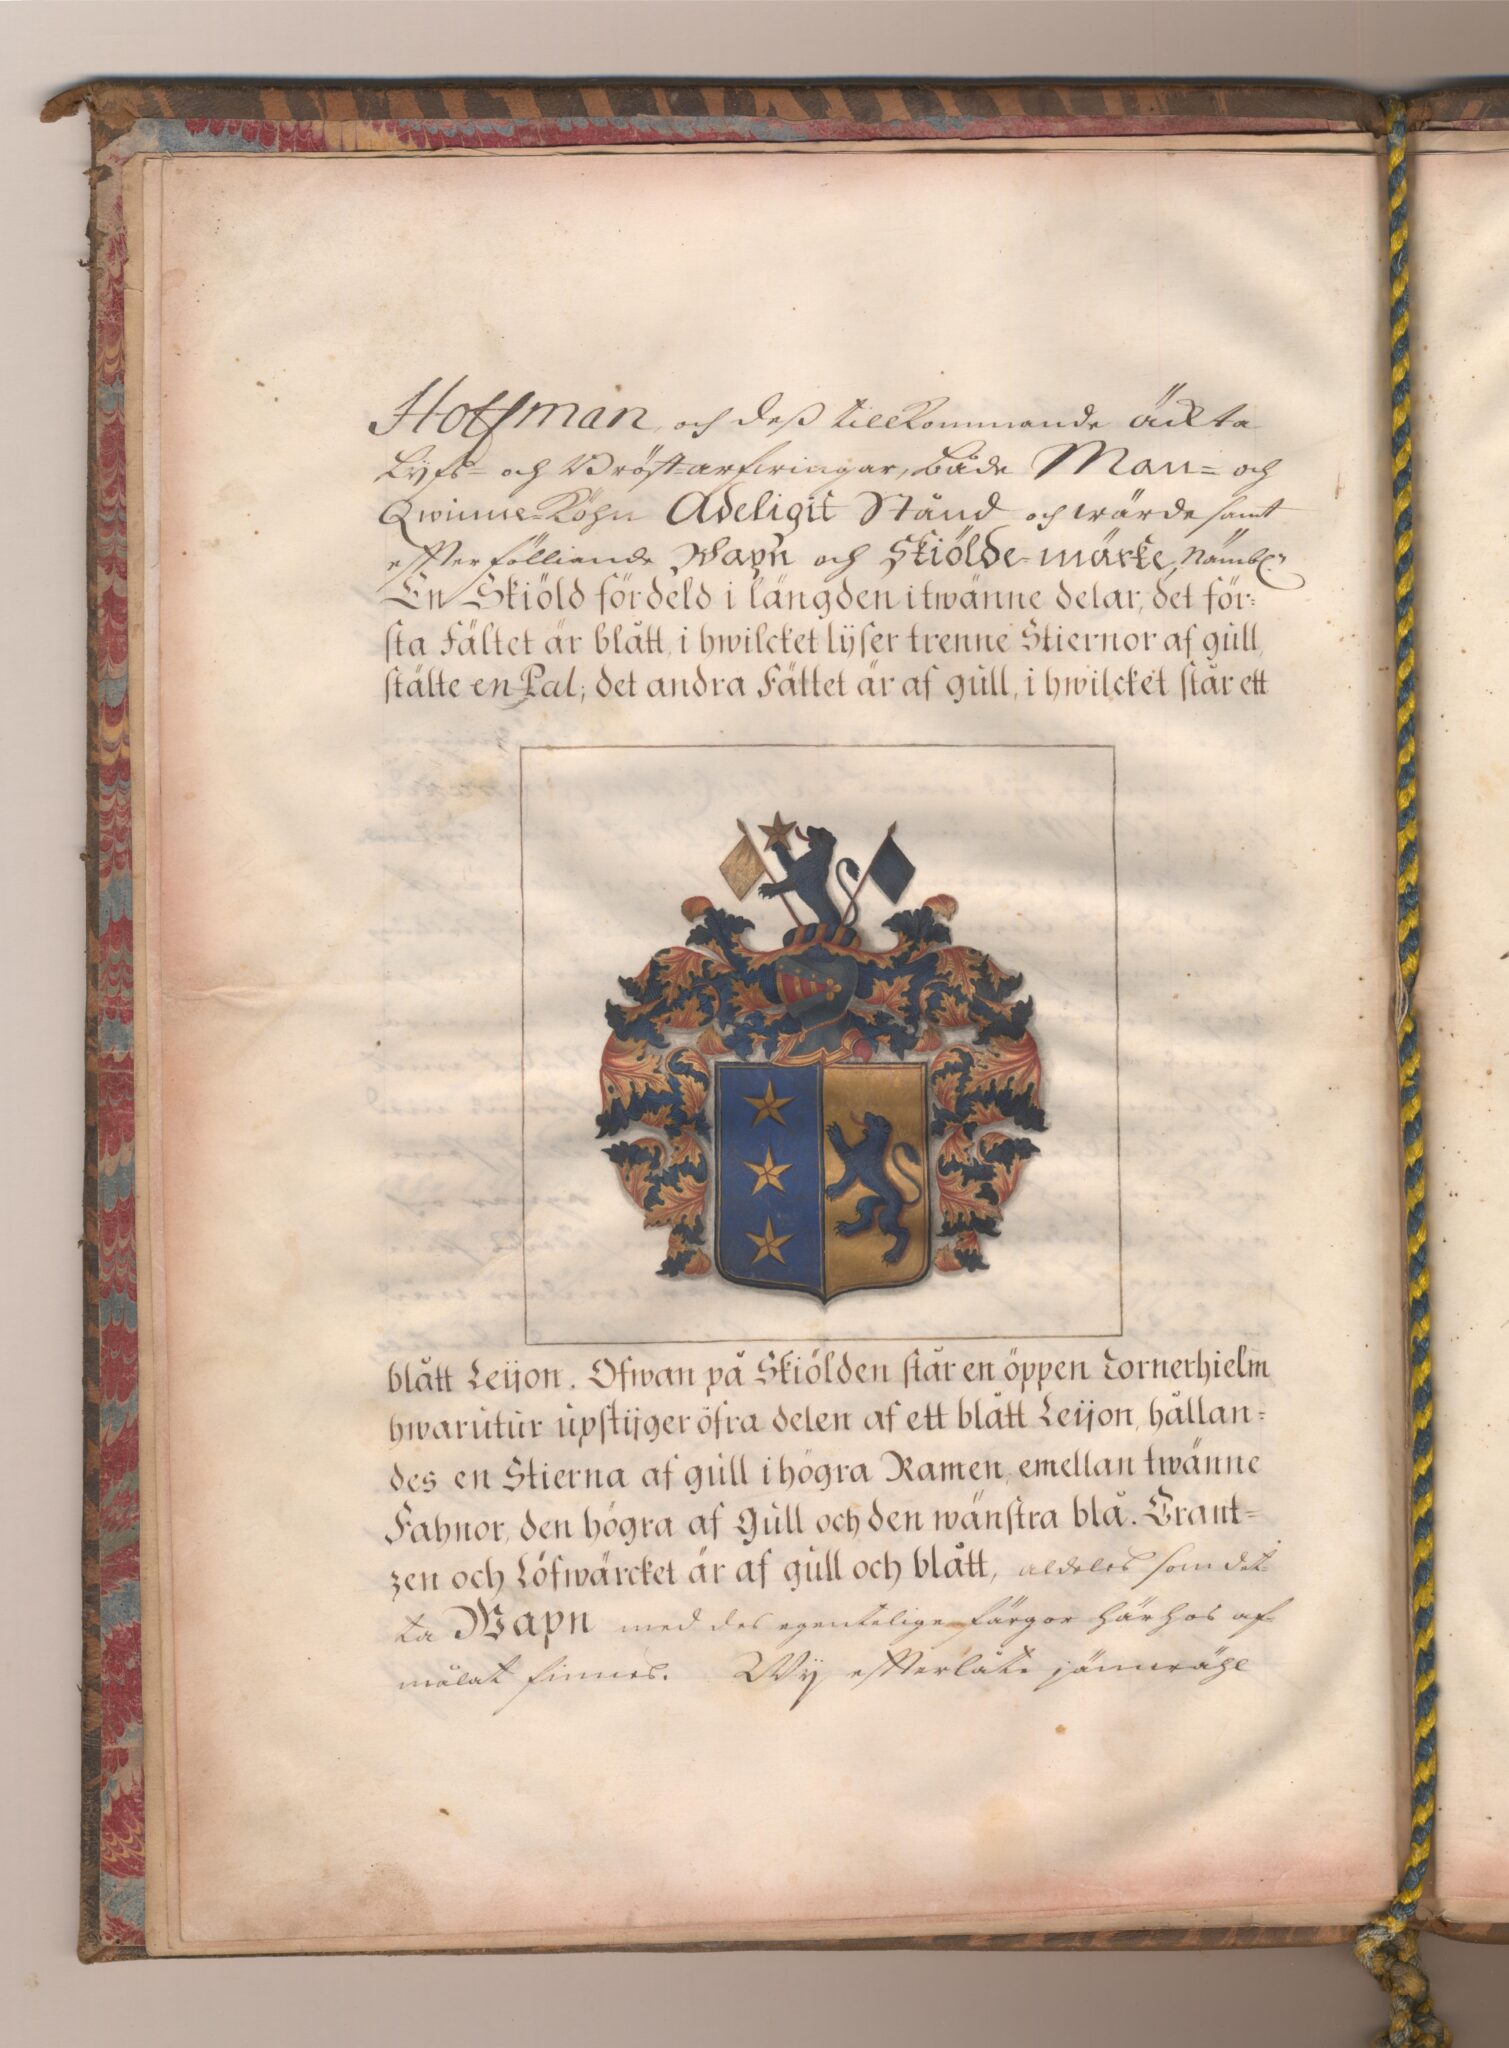 Hoffman, och deß tillkommande ächta
Lijfs- och Bröst-arfwingar, både Man- och
Qwinne-Köhn Adeligit Stånd och wärde samt
effterfölliande Wapn och Skiölde-märke, Nämbl:n
En Skiöld fördeld i längden i twänne delar, det för-
sta Fältet är blått, i hwilcket lyser trenne Stiernor af gull,
stälte en Pal; det andra Fältet är af gull, i hwilcket står ett
blått Leijon. Ofwan på Skiölden står en öppen Tornerhielm
hwarutur upstijger öfra delen af ett blått Leijon, hållan-
des en Stierna af gull i högra Ramen, emellan twänne
Fahnor, den högra af Gull och den wänstra blå. Crant-
zen och Löfwärcket är af gull och blått, aldeles som det-
ta Wapn med des egentelige färgor härhos af-
målat finnes. Wij effterlåte jämwähl